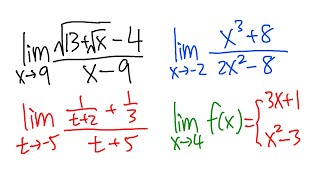 lim x→9 (√(13+√x) - 4)/(x-9)
lim x→-2 (x³+8)/(2x²-8)
lim t→-5 (1/(t+2) + 1/3)/(t+5)
lim x→4 f(x) = { 3x+1
x²-3